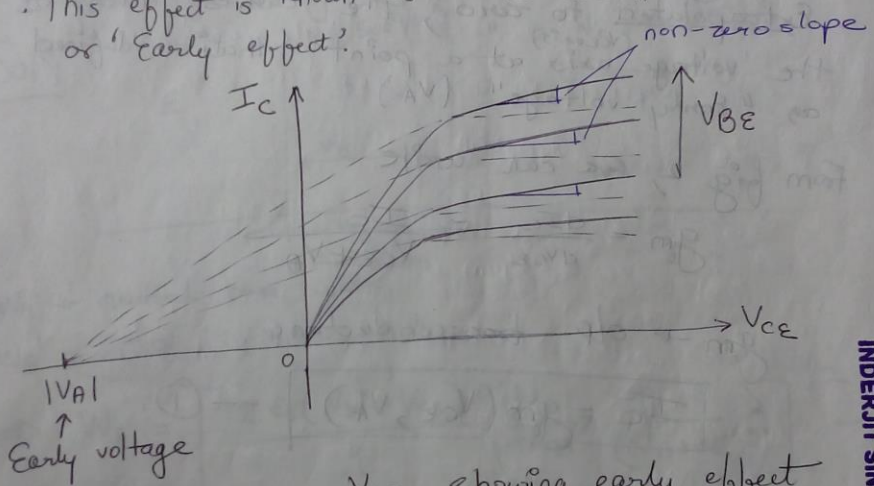 . This effect is
or 'Early effect'.
non-zero slope
IC
VBE
VCE
0
|VA|
↑
Early voltage
showing early effect
INDERJIT SIN